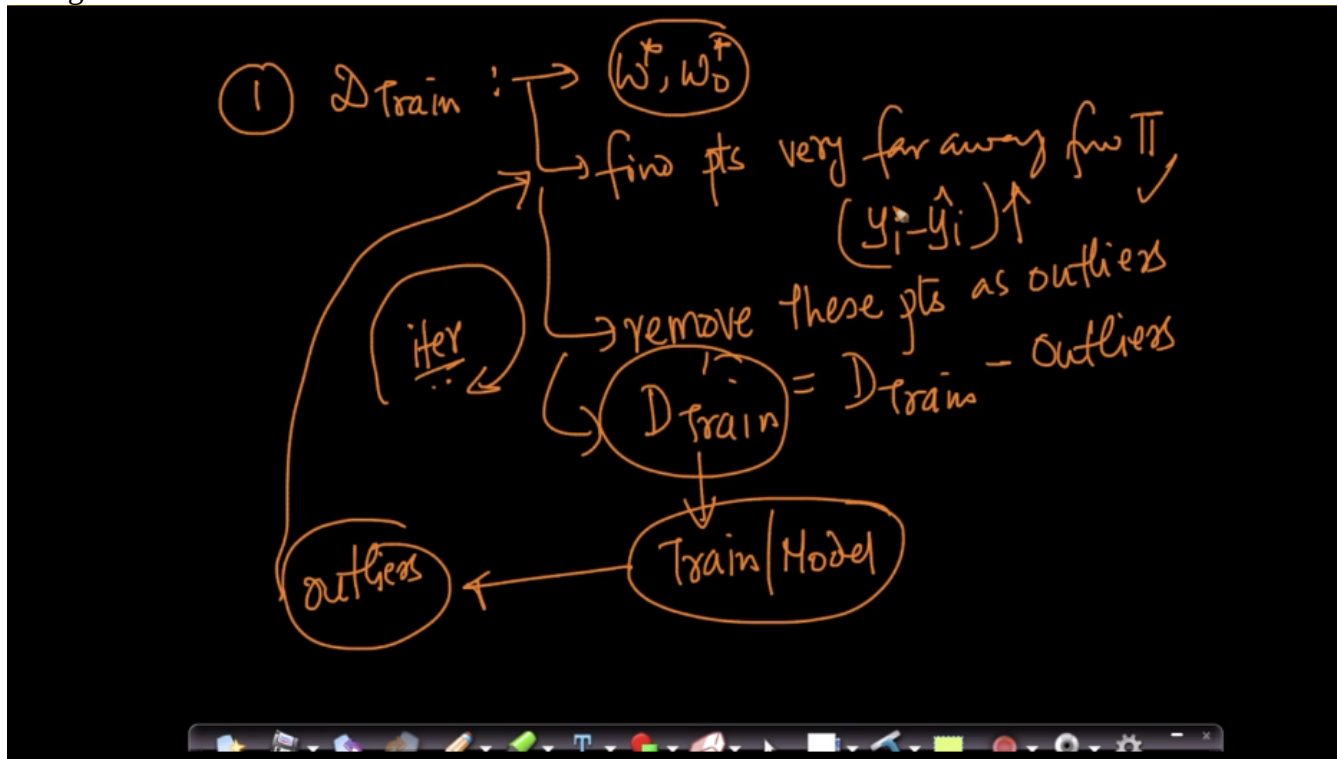 1 D Train : → w*, w₀*
→ find pts very far away from π ✓
(yᵢ - ŷᵢ) ↑
→ remove these pts as outliers
D' Train = D Train - outliers
iter
Train/Model
outliers
T